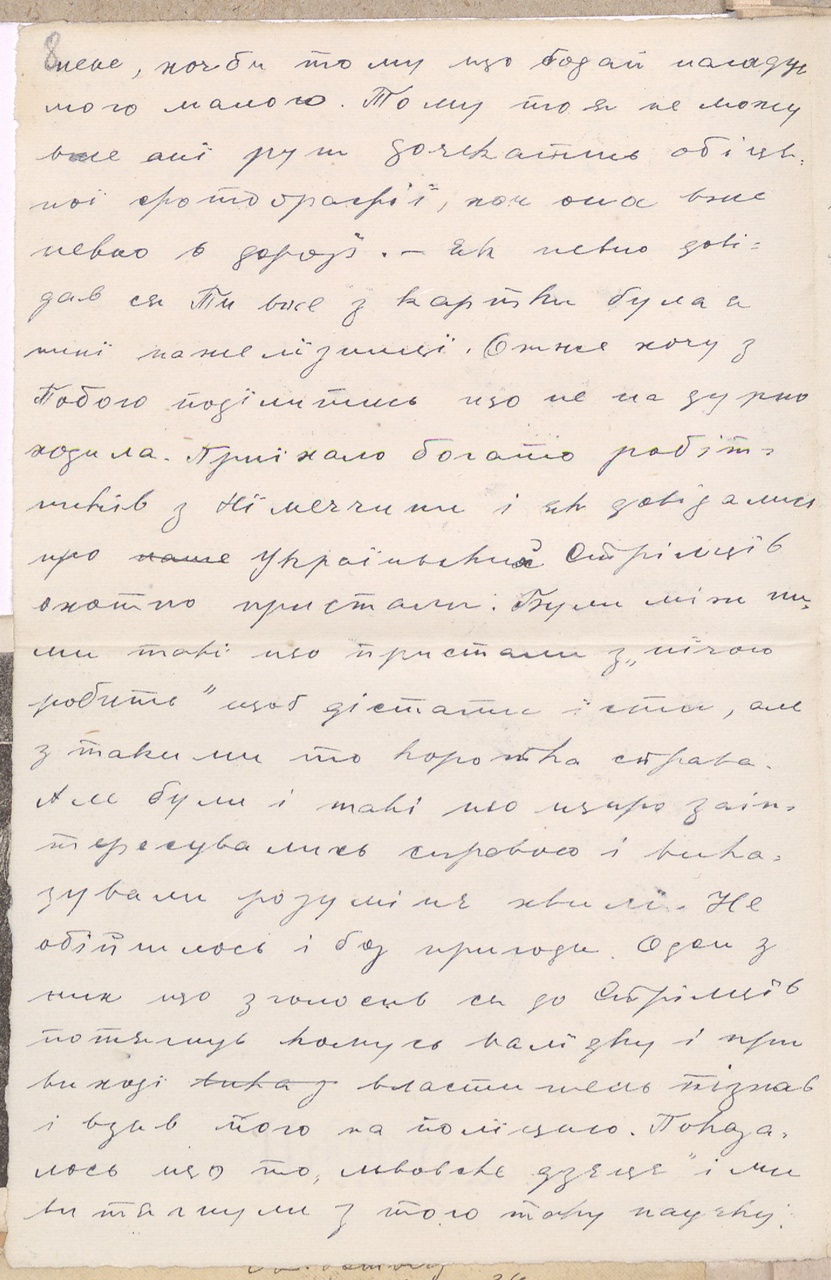 8
мене, хочби тому що бодай нагадує
мого малого. Тому то я не можу
вже ані руш дочекатись обіця-
ної фотографії, хоч она вже
певно в дорозї. — Як певно дові-
дав ся Ти вже з картки була я
нинї на желїзници. Отже хочу з
Тобою подїлитись що не на дурно
ходила. Приїхало богато робіт-
ників з Нїмеччини і як довідались
про наше Українських Стрільцїв
охотно пристали. Були між ни-
ми такі що пристали з „нїчого
робить" щоб дістати їсти, але
з такими то коротка справа.
Але були і такі що щиро заін-
тересувались справою і вика-
зували розумінє хвилї. Не
обійшлось і без пригоди. Один з
них що зголосив ся до Стрільцїв
потягнув комусь валїзку і при
виході виказ властитель пізнав
і взяв його на полїцию. Показа-
лось що то „львовске дзецє" і ми
витягнули з того таку науку: